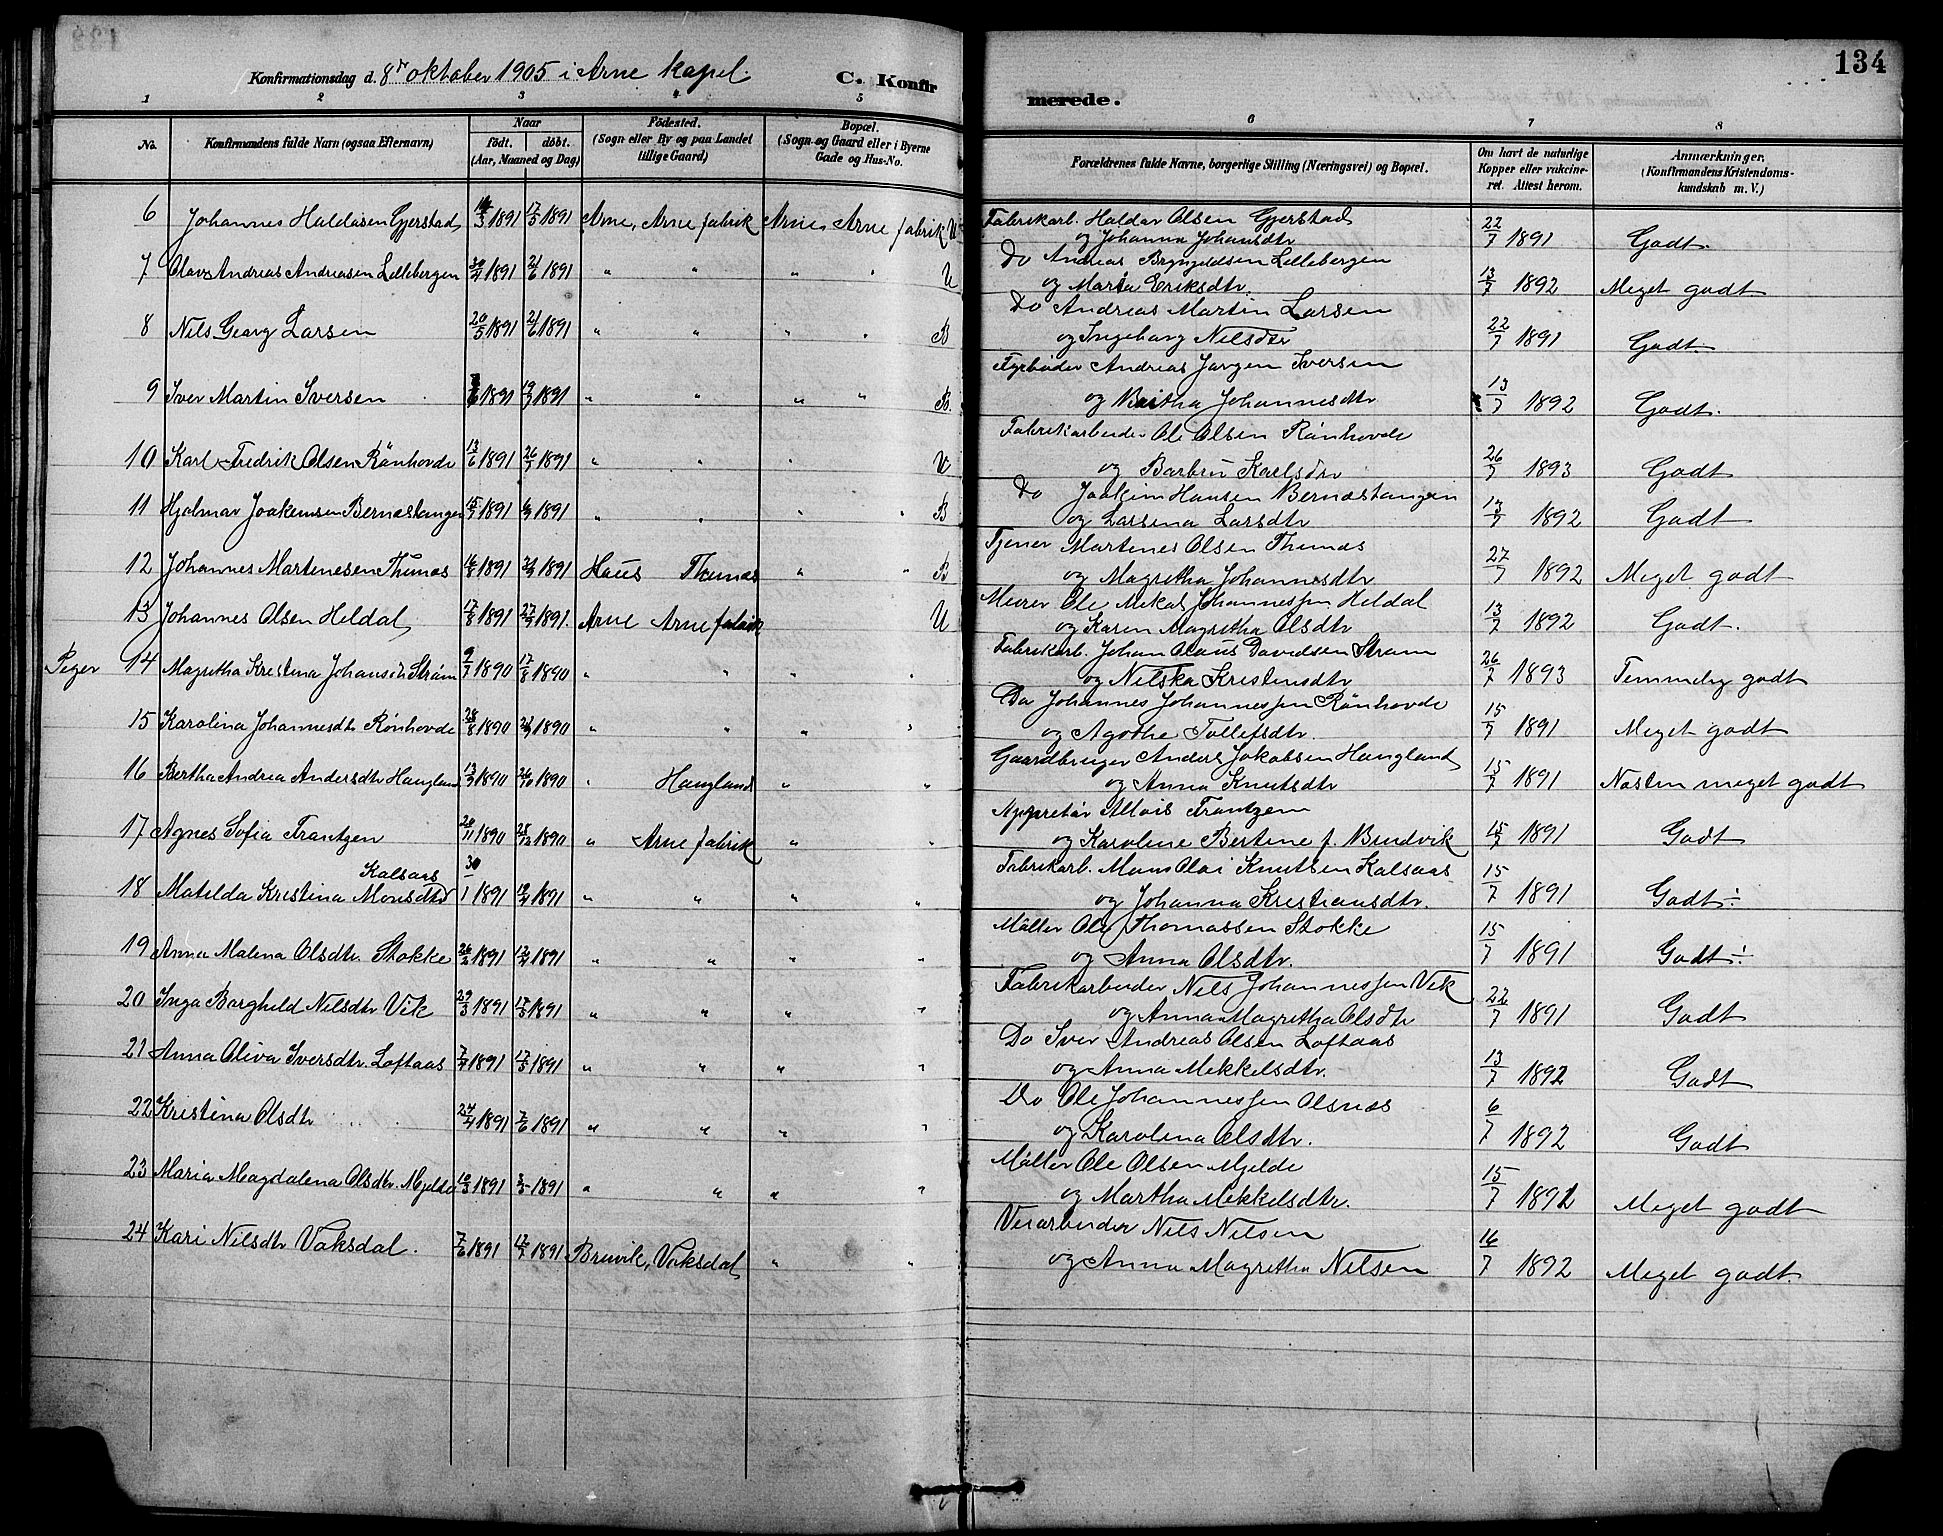 134
Konfirmationsdag d. 8de oktober 1905 i Arne kapel.
C. Konfir
merede.
1 2 3 4 5 6 7 8
No.
Konfirmandens fulde Navn (ogsaa Efternavn)
Naar
født. døbt.
(Aar, Maaned og Dag)
Födested.
(Sogn eller By og paa Landet
tillige Gaard)
Bopæl.
(Sogn og Gaard eller i Byerne
Gade og Hus-No.
Forældrenes fulde Navne, borgerlige Stilling (Næringsvei) og Bopæl.
Om havt de naturlige
Kopper eller vakcine-
ret. Attest herom.
Anmærkninger.
(Konfirmandens Kristendoms-
kundskab m. V.)
6 Johannes Haldorsen Gjerstad 3 1891 17/5 1891 Arne, Arne fabrik Arne, Arne fabrik U
Fabrikarb. Haldor Olsen Gjerstad
og Johanna Johansdtr 22/7 1891 Godt.
7 Olav Andreas Andreasen Lillebergen 30/4 1891 21/6 1891 " " " " U
Do Andreas Brynjeldsen Lillebergen
og Maria Eriksdtr. 13/7 1892 Meget godt
8 Nils Georg Larsen 20/5 1891 21/6 1891 " " " " B
Do Andreas Martin Larsen
og Ingeborg Nilsdtr 22/7 1891 Godt.
9 Iver Martin Iversen 6 1891 19/7 1891 " " " " B.
Fyrbøder Andreas Jørgen Iversen
og Britha Johannesdtr 13/7 1892 Godt.
10 Karl Fredrik Olsen Rønhovde 13/6 1891 26/7 1891 " " " U
Fabrikarbeider Ole Olsen Rønhovde
og Barbru Karlsdtr 26/7 1893 Godt
11 Hjalmar Joakimsen Bernæstangen 15/7 1891 1891 " " " " B
Do Joakim Hansen Bernæstangen
og Larsina Larsdtr 13/7 1892 Godt
12 Johannes Martenesen Thunæs 16/8 1891 1891 Haus Thunæs " " B
Tjener Martenes Olsen Thunæs
og Magretha Johannesdtr 27/7 1892 Meget godt
13 Johannes Olsen Heldal 17/8 1891 27/9 1891. Arne Arne fabrik U
Murer Ole Mikal Johannessen Heldal
og Karen Magretha Olsdtr 13/7 1892 Godt.
Piger 14 Magretha Kristina Johansdt Strøm 9/7 1890 17/8 1890 " " " "
Fabrikarb. Johan Claus Davidsen Strøm
og Nilska Kristensdtr 26/7 1893 Temmelig godt
15 Karolina Johannesdtr Rønhovde 28/8 1890 21/9 1890 " " " "
Do Johannes Johannessen Rønhovde
og Agothe Tollefsdtr. 15/7 1891 Meget godt
16 Bertha Andrea Andersdtr Haugland 13/9 1890 26/10 1890 " Haugland " "
Gaardbruger Anders Jakobsen Haugland
og Anna Knutsdtr 15/7 1891 Næsten meget godt
17 Agnes Sofia Frantzen 20/11 1890 28/12 1890 " Arne fabrik " "
Appretør Alois Frantzen
og Karoline Bertine f. Brudvik 15/7 1891 Godt
18 Matilda Kristina Monsdtr Kalsaas 30/1 1891 19/4 1891 " " " "
Fabrikarb. Mons Olai Knutsen Kalsaas
og Johanna Kristiansdtr. 15/7 1891 Godt÷
19 Anna Malena Olsdtr. Stokke 26/2 1891 12/4 1891 " " "
Møller Ole Thomassen Stokke
og Anna Olsdtr. 15/7 1891 Godt÷
20 Inga Borghild Nilsdtr Vik 29/3 1891 17/5 1891 " " " "
Fabrikarbeider Nils Johannessen Vik
og Anna Magretha Olsdtr 22/7 1891 Godt
21 Anna Oliva Iversdtr. Loftaas 7/4 1891 17/5 1891 " " " "
Do Iver Andreas Olsen Loftaas
og Anna Mikkelsdtr. 13/7 1892 Godt
22 Kristina Olsdtr 24/4 1891 7/6 1891 " " " "
Do Ole Johannessen Olsnæs
og Karolina Olsdtr. 6/7 1892 Godt
23 Maria Magdalena Olsdtr. Mjelde 10/3 1891 3/5 1891 " " " "
Møller Ole Olsen Mjelde
og Martha Mikkelsdtr. 15/7 1892 Meget godt
24 Kari Nilsdtr Vaksdal. 7/6 1891 1891 Bruvik, Vaksdal " "
Veiarbeider Nils Nilsen
og Anna Magretha Nilsen 16/7 1892 Meget godt